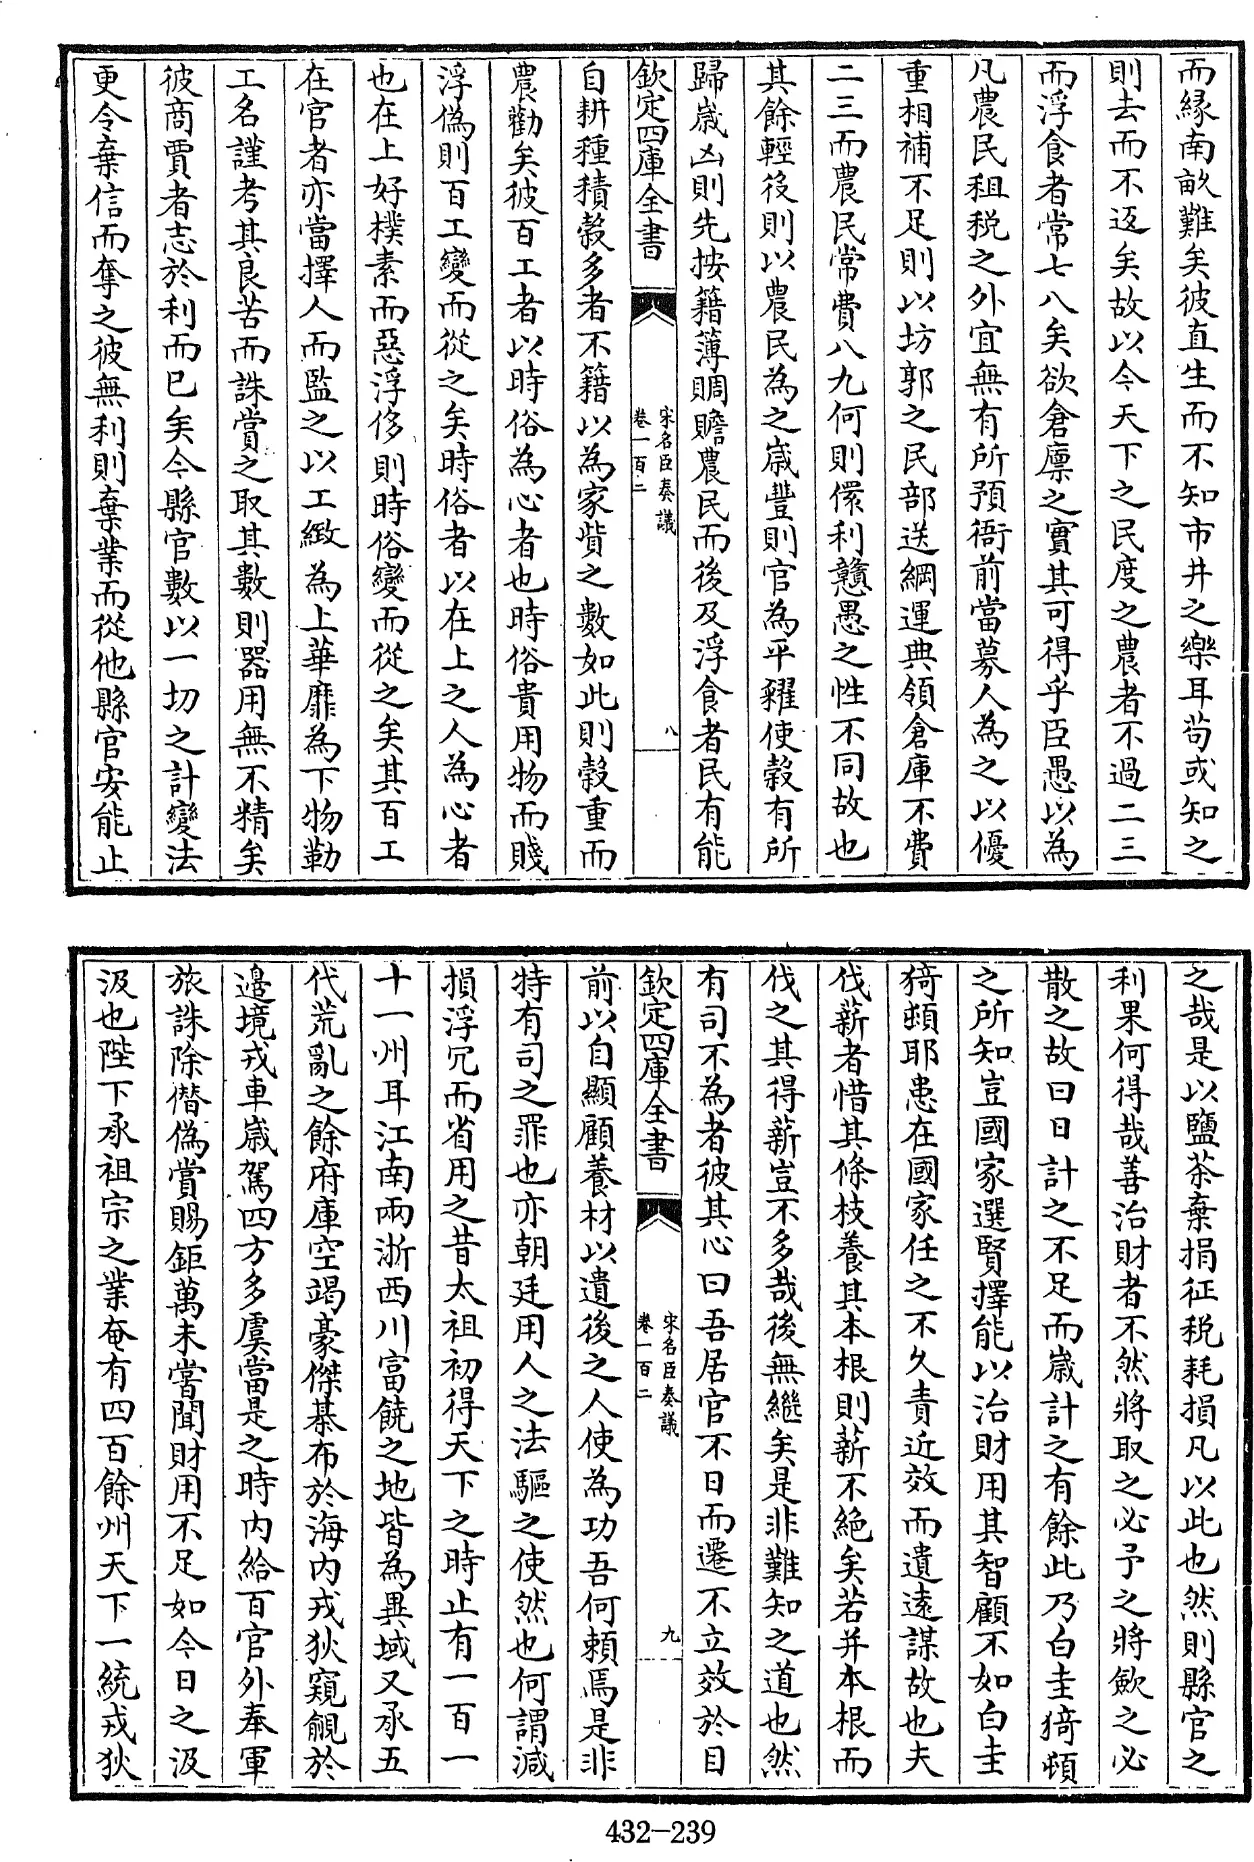 而縁南畝難矣彼直生而不知市井之樂耳茍或知之
則去而不返矣故以今天下之民度之農者不過二三
而浮食者常七八矣欲倉廪之實其可得乎臣愚以為
凡農民租税之外宜無有所預衙前當募人為之以優
重相補不足則以坊郭之民部送綱運典領倉庫不費
二三而農民常費八九何則儇利戇愚之性不同故也
其餘輕役則以農民為之歳豐則官為平糴使榖有所
歸歳凶則先按籍薄賙贍農民而後及浮食者民有能
欽定四庫全書
宋名臣奏議
卷一百二
八
自耕種積榖多者不籍以為家貲之數如此則榖重而
農勸矣彼百工者以時俗為心者也時俗貴用物而賤
浮偽則百工變而從之矣時俗者以在上之人為心者
也在上好樸素而惡浮侈則時俗變而從之矣其百工
在官者亦當擇人而監之以工緻為上華靡為下物勒
工名謹考其良苦而誅賞之取其數則器用無不精矣
彼商賈者志於利而已矣今縣官數以一切之計變法
更令棄信而奪之彼無利則棄業而從他縣官安能止
之哉是以鹽茶棄捐征税耗損凡以此也然則縣官之
利果何得哉善治財者不然將取之必予之將斂之必
散之故曰日計之不足而歳計之有餘此乃白圭猗頓
之所知豈國家選賢擇能以治財用其智顧不如白圭
猗頓耶患在國家任之不久責近效而遺遠謀故也夫
伐薪者惜其條枝養其本根則薪不絶矣若并本根而
伐之其得薪豈不多哉後無繼矣是非難知之道也然
有司不為者彼其心曰吾居官不日而遷不立效於目
欽定四庫全書
宋名臣奏議
卷一百二
九
前以自顯顧養材以遺後之人使為功吾何頼焉是非
特有司之罪也亦朝廷用人之法驅之使然也何謂減
損浮冗而省用之昔太祖初得天下之時止有一百一
十一州耳江南兩浙西川富饒之地皆為異域又承五
代荒亂之餘府庫空竭豪傑棊布於海内戎狄窺覦於
邉境戎車歳駕四方多虞當是之時内給百官外奉軍
旅誅除僣偽賞賜鉅萬未嘗聞財用不足如今日之汲
汲也陛下承祖宗之業奄有四百餘州天下一統戎狄
432-239